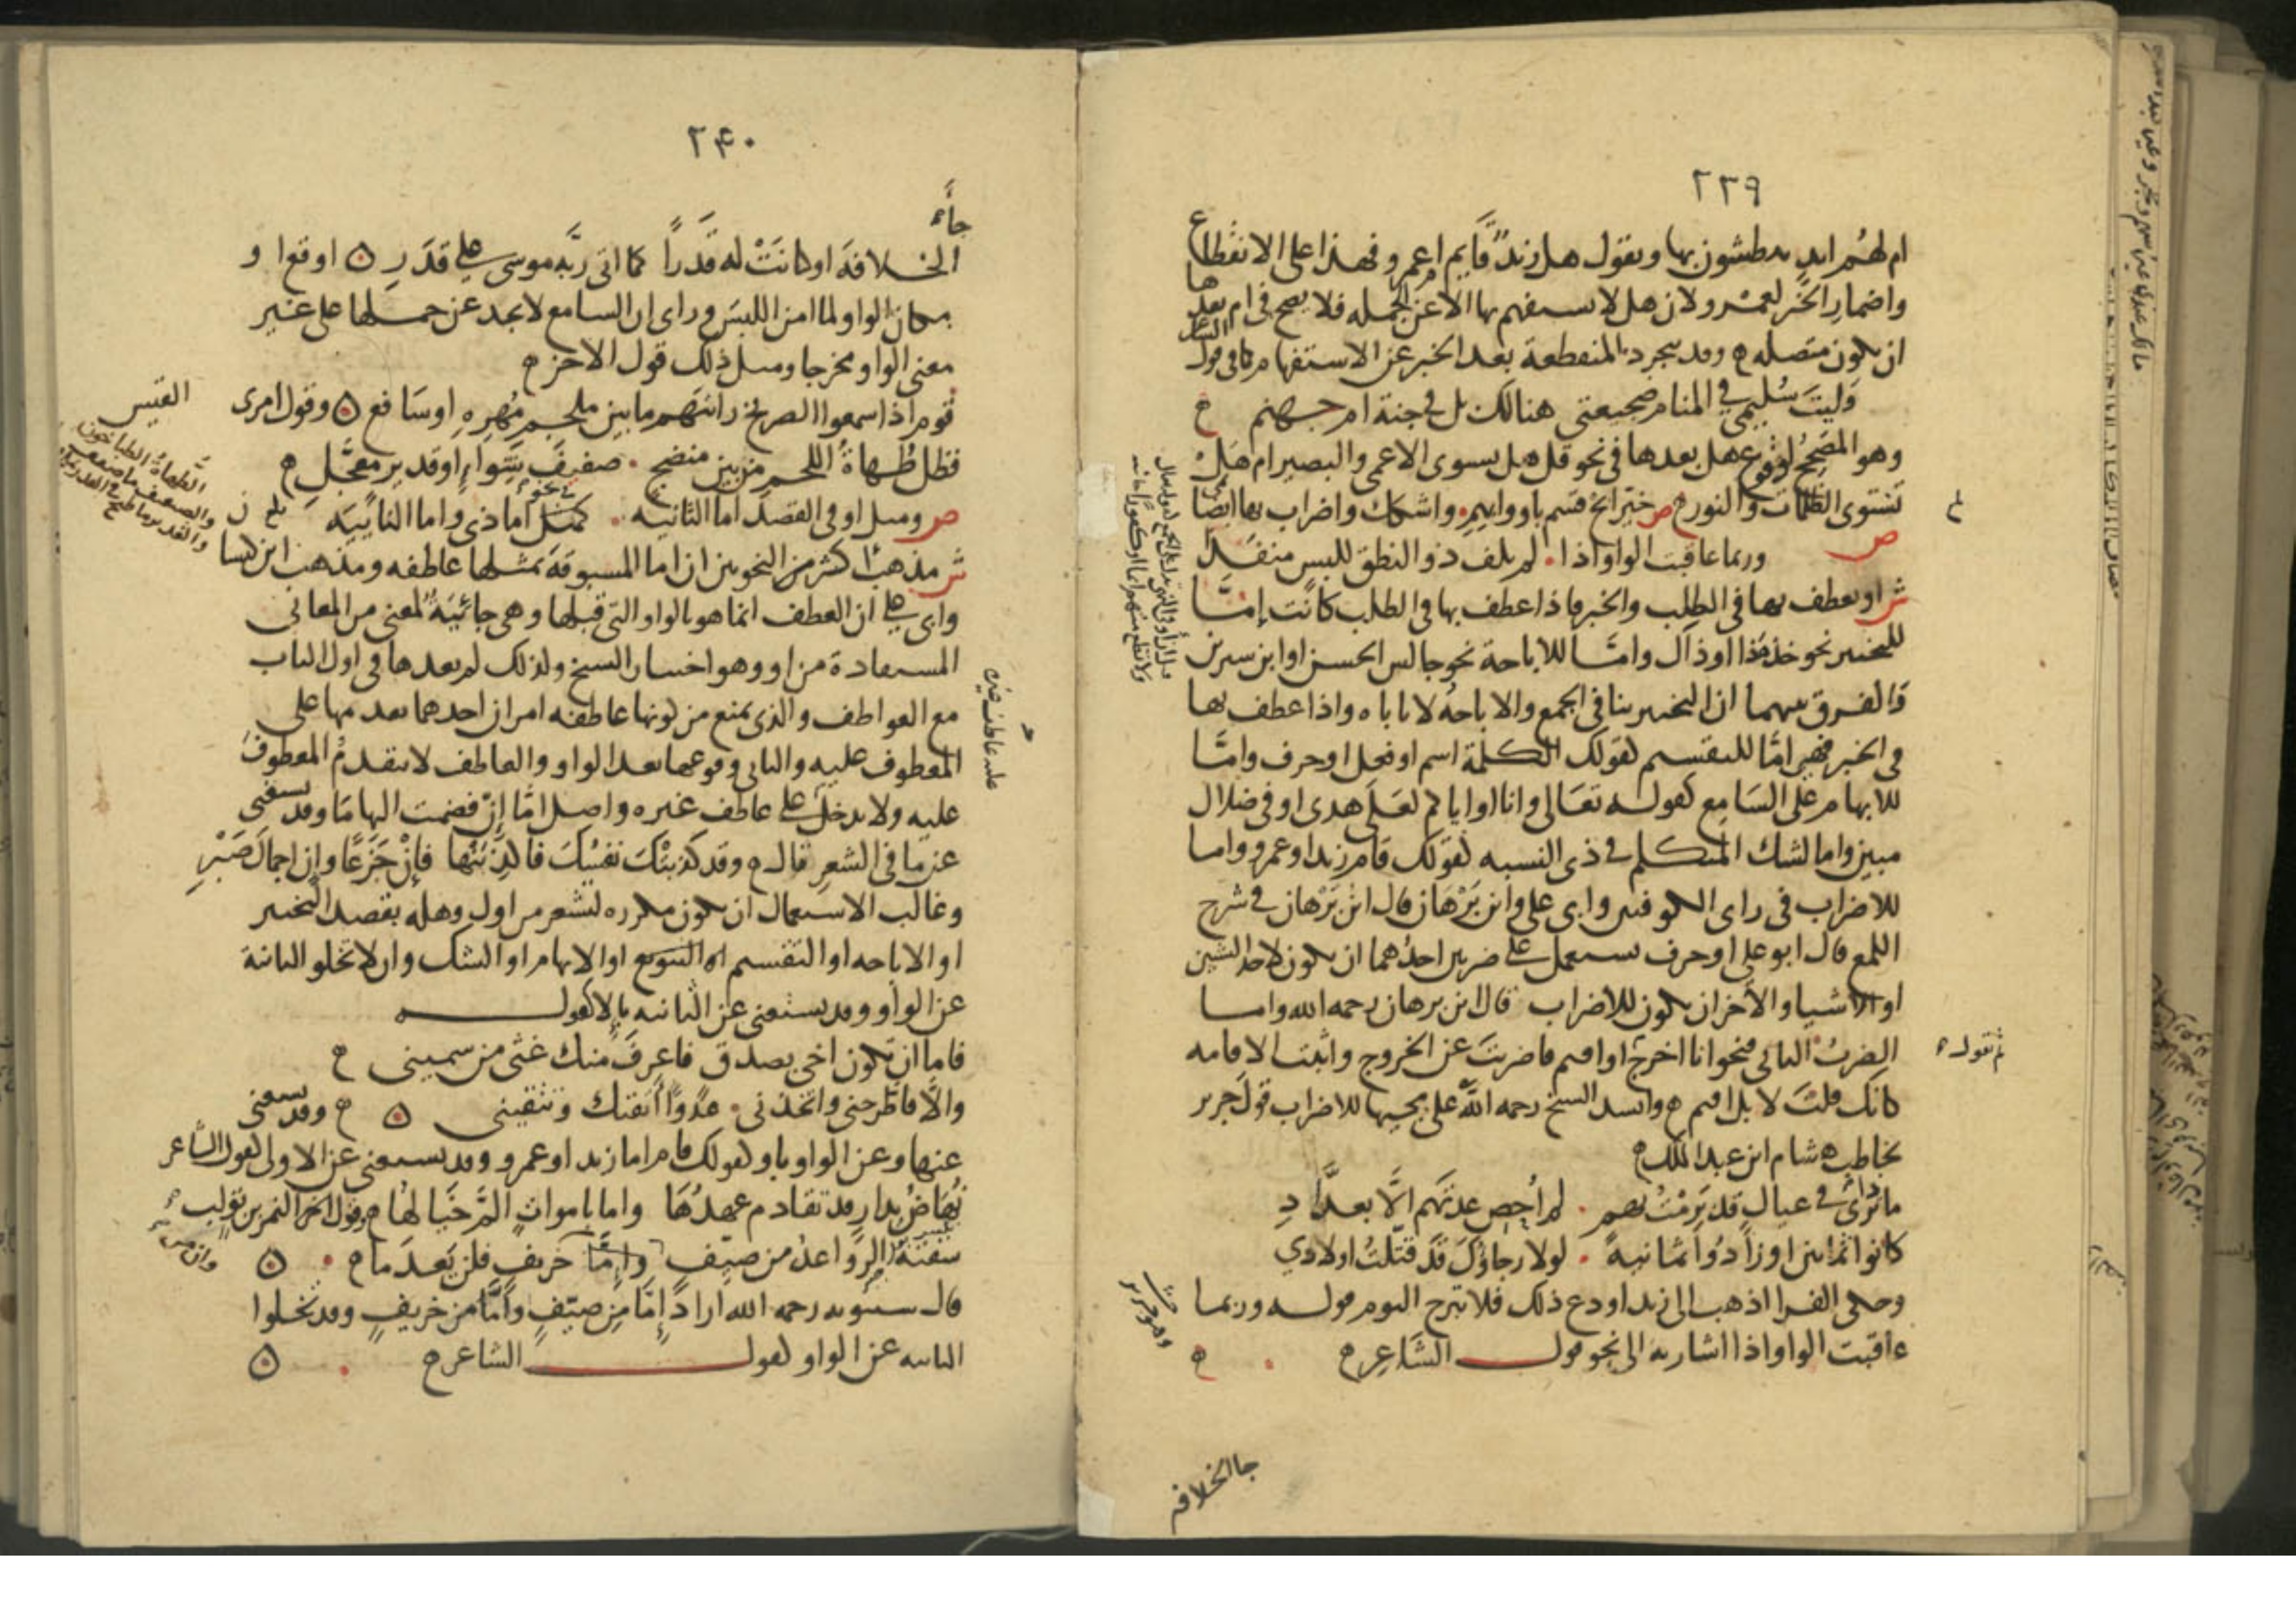 ٢٣٩
ام لهم ايد يبطشون بها ويقول هل زيد قايم ام عمرو فهذا على الانقطاع
واضمار الخبر لعمرو ولان هل لا يستفهم بها الا عن الجمله فلا يصح في ام بعدها
ان يكون متصله وقد يجرد المنقطعة بعد الخبر عن الاستفهام كما في قول الشاعر
وليت سليمى في المنام ضجيعتي هنالك بل في جنة ام جهنم
وهو المصحح لوقوع هل بعدها في نحو قل هل يستوى الاعمى والبصير ام هل
تستوى الظلمات والنور ص خير ابح قسم باو وابهم واشكك واضراب بها ايضا نمى
ص
وربما عاقبت الواو اذا لم يلف ذو النطق للبس منفذا
ش او يعطف بها في الطلب والخبر فاذا عطف بها في الطلب كانت إما
للتخيير نحو خذ هذا او ذاك واما للاباحة نحو جالس الحسن او ابن سيرين
والفرق بينهما ان التخيير ينافي الجمع والاباحة لا تاباه واذا عطف بها
في الخبر فهي اما للتقسيم كقولك الكلمة اسم او فعل او حرف واما
للابهام على السامع كقوله تعالى وانا او اياكم لعلى هدى او في ضلال
مبين واما لشك المتكلم في ذى النسبه كقولك قام زيد او عمرو واما
للاضراب في راى الكوفيين وابى على وابن برهان قال ابن برهان في شرح
اللمع قال ابو على او حرف يستعمل على ضربين احدهما ان يكون لاحد الشيئين
او الاشيا والآخر ان يكون للاضراب قال ابن برهان رحمه الله واما
الضرب الثاني فنحو انا اخرج او اقيم فاضربت عن الخروج واثبت الاقامه
ثم تقول
كانك قلت لا بل اقيم وانشد الشيخ رحمه الله على مجيها للاضراب قول جرير
يخاطب هشام ابن عبد الملك
ماذا ترى في عيال قد برمت بهم لم أحص عدتهم الا بعداد
كانوا ثمانين او زادوا ثمانية لولا رجاؤك قد قتلت اولادي
وحكى الفرا اذهب الى زيد او دع ذلك فلا تبرح اليوم قوله وربما
عاقبت الواو اذا اشار به الى نحو قول الشاعر
وهو جرير
جا الخلافه
٢٤٠
جاء
الخلافة او كانت له قدرا كما اتى ربه موسى على قدر اوقعوا
مكان الواو لما امن اللبس وراى ان السامع لا يجد عن حملها على غير
معنى الواو مخرجا ومثل ذلك قول الاخر
قوم اذا سمعوا الصريخ رايتهم ما بين ملجم مهره او سافع وقول امرى
القيس
فظل طهاة اللحم من بين منضج صفيف شواء او قدير معجل
الطهاة الطباخون
والصفيف ما صفف
والقدير ما طبخ في القدر
ص ومثل او في القصد اما الثانيه كمثل اما ذى واما النائيه
ش مذهب اكثر من النحويين ان اما المسبوقة بمثلها عاطفه ومذهب ابن كيسا
وابى على ان العطف انما هو بالواو التي قبلها وهى جائية لمعنى من المعاني
المستفادة من او وهو اختيار الشيخ ولذلك لم يعدها في اول الباب
مع العواطف والذى يمنع من كونها عاطفه امران احدهما تقديمها على
المعطوف عليه والثاني وقوعها بعد الواو والعاطف لا يتقدم المعطوف
عليه ولا يدخل على عاطف غيره واصل اما إن فضمت اليها ما وقد يستغنى
عن ما في الشعر قال وقد كذبتك نفسك فاكذبنها فإن جزعا وإن اجمال صبر
وغالب الاستعمال ان يكون مكرره لتشعر من اول وهله بقصد التخيير
او الاباحه او التقسيم او التنويع او الابهام او الشك وان لا تخلو الثانية
عن الواو وقد يستغنى عن الثانيه بإلا كقوله
فاما ان تكون اخى بصدق فاعرف منك غثى من سمينى
والا فاطرحنى واتخذنى عدوا أتقيك وتتقينى وقد يستغنى
عنها وعن الواو باو كقولك قام اما زيد او عمرو وقد يستغنى عن الاولى كقول الشاعر
تهاض بدار قد تقادم عهدها واما باموات الم خيالها وقول الاخر النمر بن تولب
سقته الرواعد من صيف وان من خريف فلن يعدما
قال سيبويه رحمه الله اراد إما من صيف واما من خريف وقد تخلوا
الثانيه عن الواو كقول الشاعر